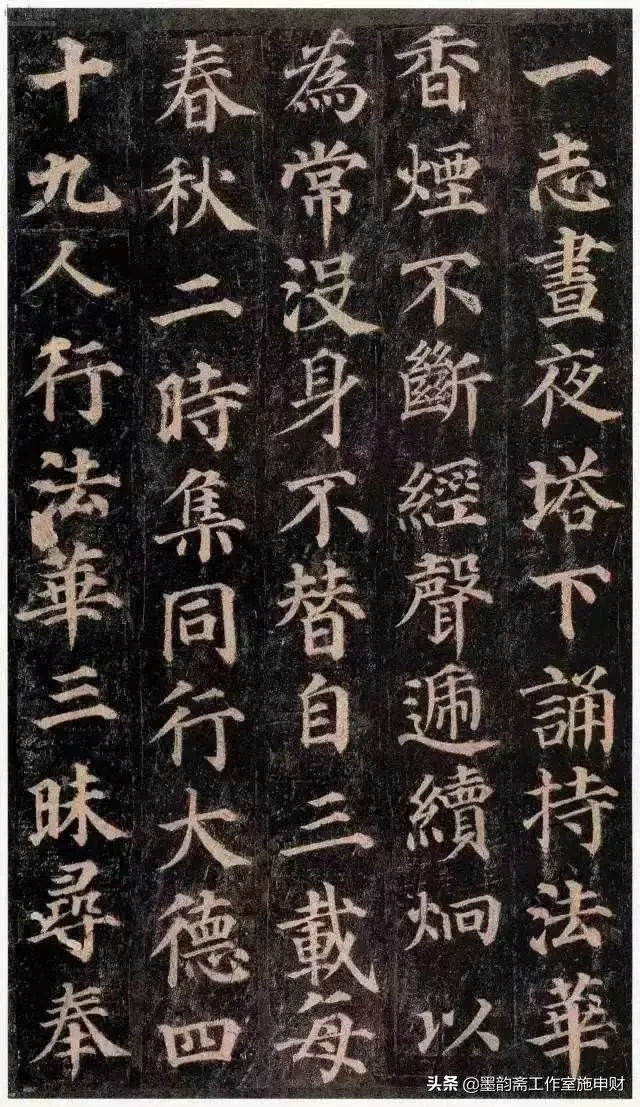 一志晝夜塔下誦持法華
香煙不斷經聲遞續炯以
為常没身不替自三載每
春秋二時集同行大德四
十九人行法華三昧尋奉
头条 @墨韵斋工作室施申财